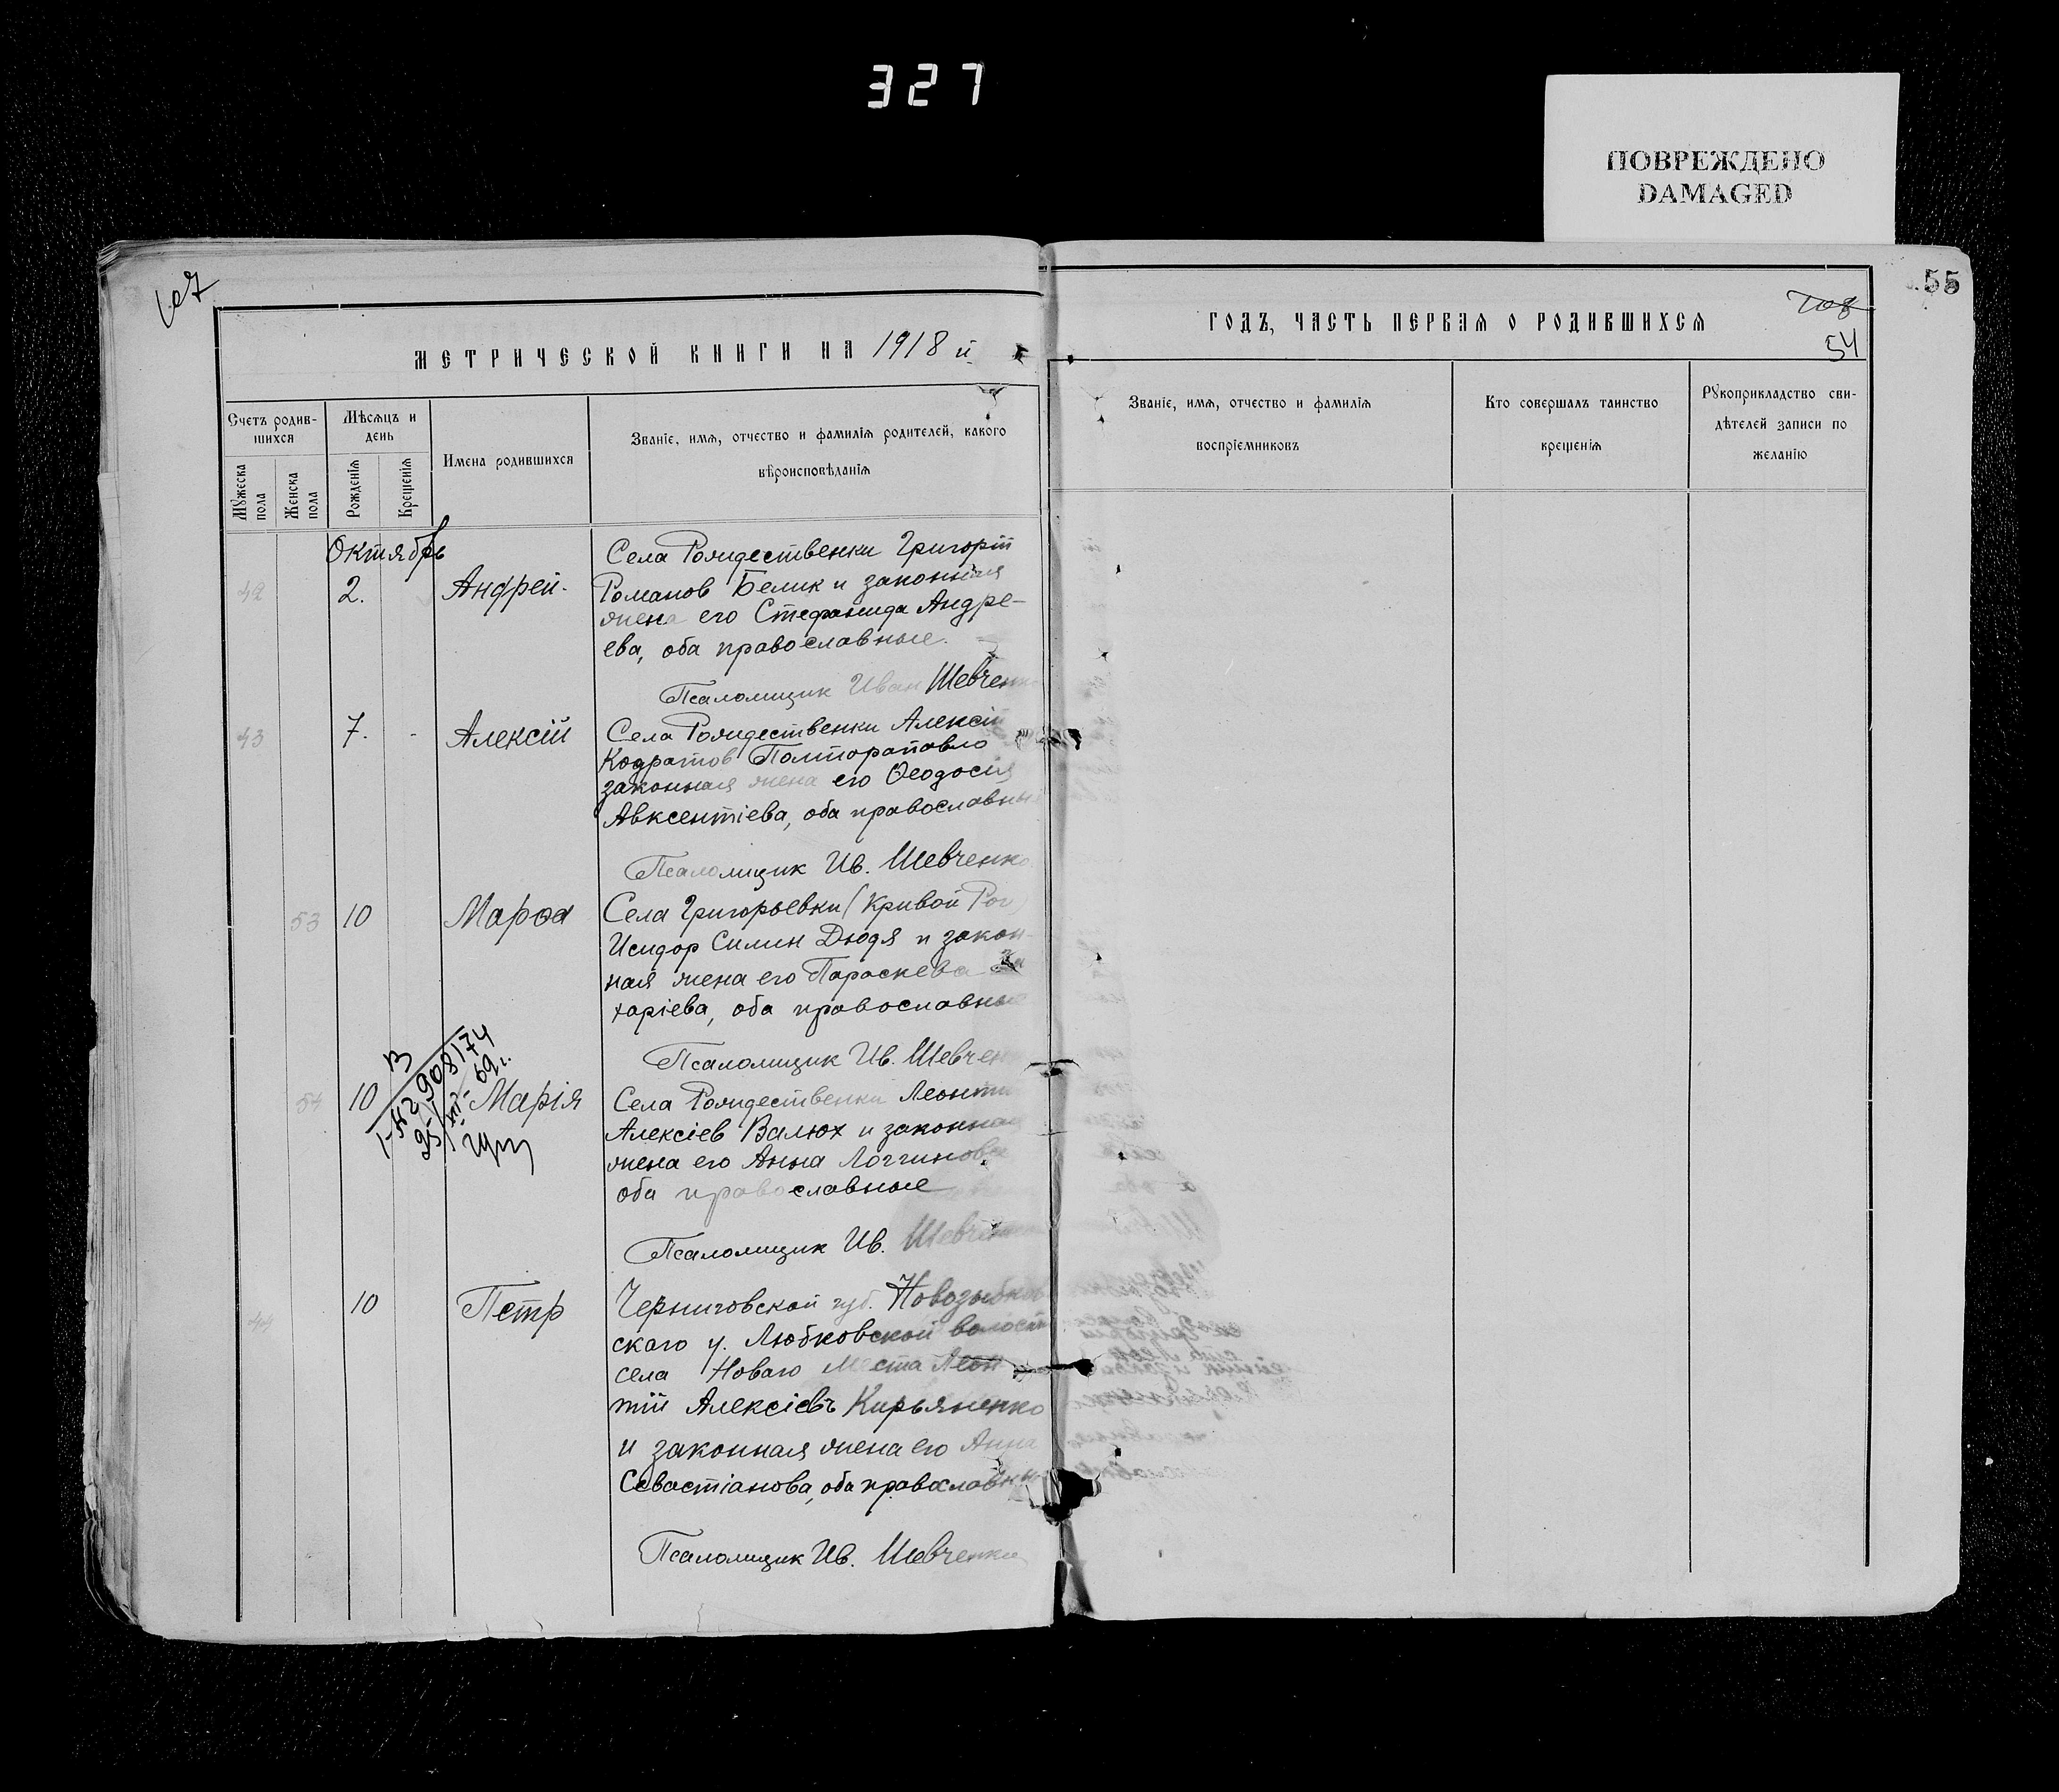 327
ПОВРЕЖДЕНО
DAMAGED
107
МЕТРИЧЕСКОЙ КНИГИ НА 1918 й
Счетъ родив-
шихся
Мѣсяцъ и
день
Имена родившихся
Званіе, имя, отчество и фамилія родителей, какого
вѣроисповѣданія
Мужеска
пола
Женска
пола
Рожденія
Крещенія
Октябрь
Села Рождественки Григорій
42 2. Андрей. Романов Белик и законная
жена его Стефанида Андре-
ева, оба православные.
Псаломщик Иван Шевченко
43 7. Алексій Села Рождественки Алексій
Кодратов
законная жена его Ѳеодосия
Авксентіева, оба православны
Псаломщик Ив. Шевченко
53 10 Марѳа Села Григорьевки (Кривой Рог)
Исидор Силин Дюдя и закон-
ная жена его Параскева За
харіева, оба православные
Псаломщик Ив. Шевчен
54 10 Марія Села Рождественки Леонти
Алексіев Валюх и законная
жена его Анна Логгинова
оба православные
Псаломщик Ив. Шевченко
908174
44 10 Петр Черниговской губ. Новозыбков
скаго у. Любковской волости
села Новаго Места Леон
тій Алексіевъ Кирьяненко
и законная жена его Анна
Севастіанова, оба православны
Псаломщик Ив. Шевченко
55
108
ГОДЪ, ЧАСТЬ ПЕРВАЯ О РОДИВШИХСЯ
54
Званіе, имя, отчество и фамилія
воспріемниковъ
Кто совершалъ таинство
крещенія
Рукоприкладство сви-
дѣтелей записи по
желанію